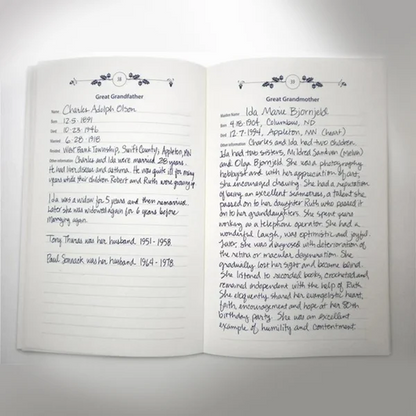 38
Great Grandfather
Name: Charles Adolph Olson
Born: 12.5.1891
Died: 10.23.1946
Married: 6.28.1918
Resided: West Bank Township, Swift County, Appleton, MN
Other information: Charles and Ida were married 28 years.
He had Heart disease and asthma. He was quite ill for many
years while their children Robert and Ruth were growing up.
Ida was a widow for 5 years and then remarried.
Later she was widowed again for 6 years before
marrying again.
Tony Thenas was her husband 1951-1958.
Paul was her husband 1964-1978
39
Great Grandmother
Maiden Name: Ida Marie Bjornjeld
Born: 4.18.1904, Columbus, ND
Died: 12.7.1994, Appleton, MN (heart)
Other information: Charles and Ida had two children.
Ida had two sisters, Mildred Sandven
and Olga Bjornjeld. She was a photography
hobbyist and with her appreciation of art,
she encouraged drawing. She had a reputation
of being an excellent seamstress, a talent she
passed on to her daughter Ruth who passed it
on to her granddaughters. She spent years
working as a telephone operator. She had a
wonderful laugh, was optimistic and joyful.
1970s, she was diagnosed with deterioration of
the retina or macular degeneration. She
gradually lost her sight and became blind.
She listened to recorded books, crocheted and
remained independent with the help of Ruth.
She eloquently shared her evangelistic heart,
faith encouragement and hope at her 80th
birthday party. She was an excellent
example of humility and contentment